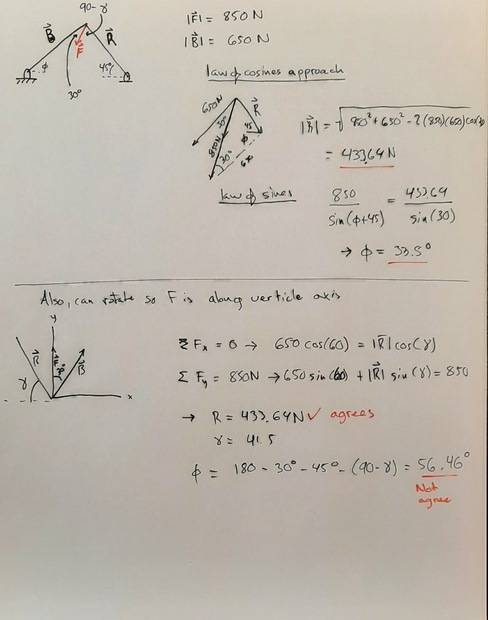 90 - γ
B R
F
φ 45°
30°
|F⃗| = 850 N
|B⃗| = 650 N
law of cosines approach
650N 30° R⃗
850N 45 φ
30° 650
|R⃗| = √850² + 650² - 2(850)(650)cos30
= 433.64 N
law of sines
850 / sin(φ+45) = 433.64 / sin(30)
→ φ = 33.5°
Also, can rotate so F is along verticle axis
y
|R⃗| F 30° |B⃗|
γ x
Σ Fx = 0 → 650 cos(60) = |R⃗| cos(γ)
Σ Fy = 850N → 650 sin(60) + |R⃗| sin(γ) = 850
→ R = 433.64N ✓ agrees
γ = 41.5
φ = 180 - 30° - 45° - (90 - γ) = 56.46°
Not
agree